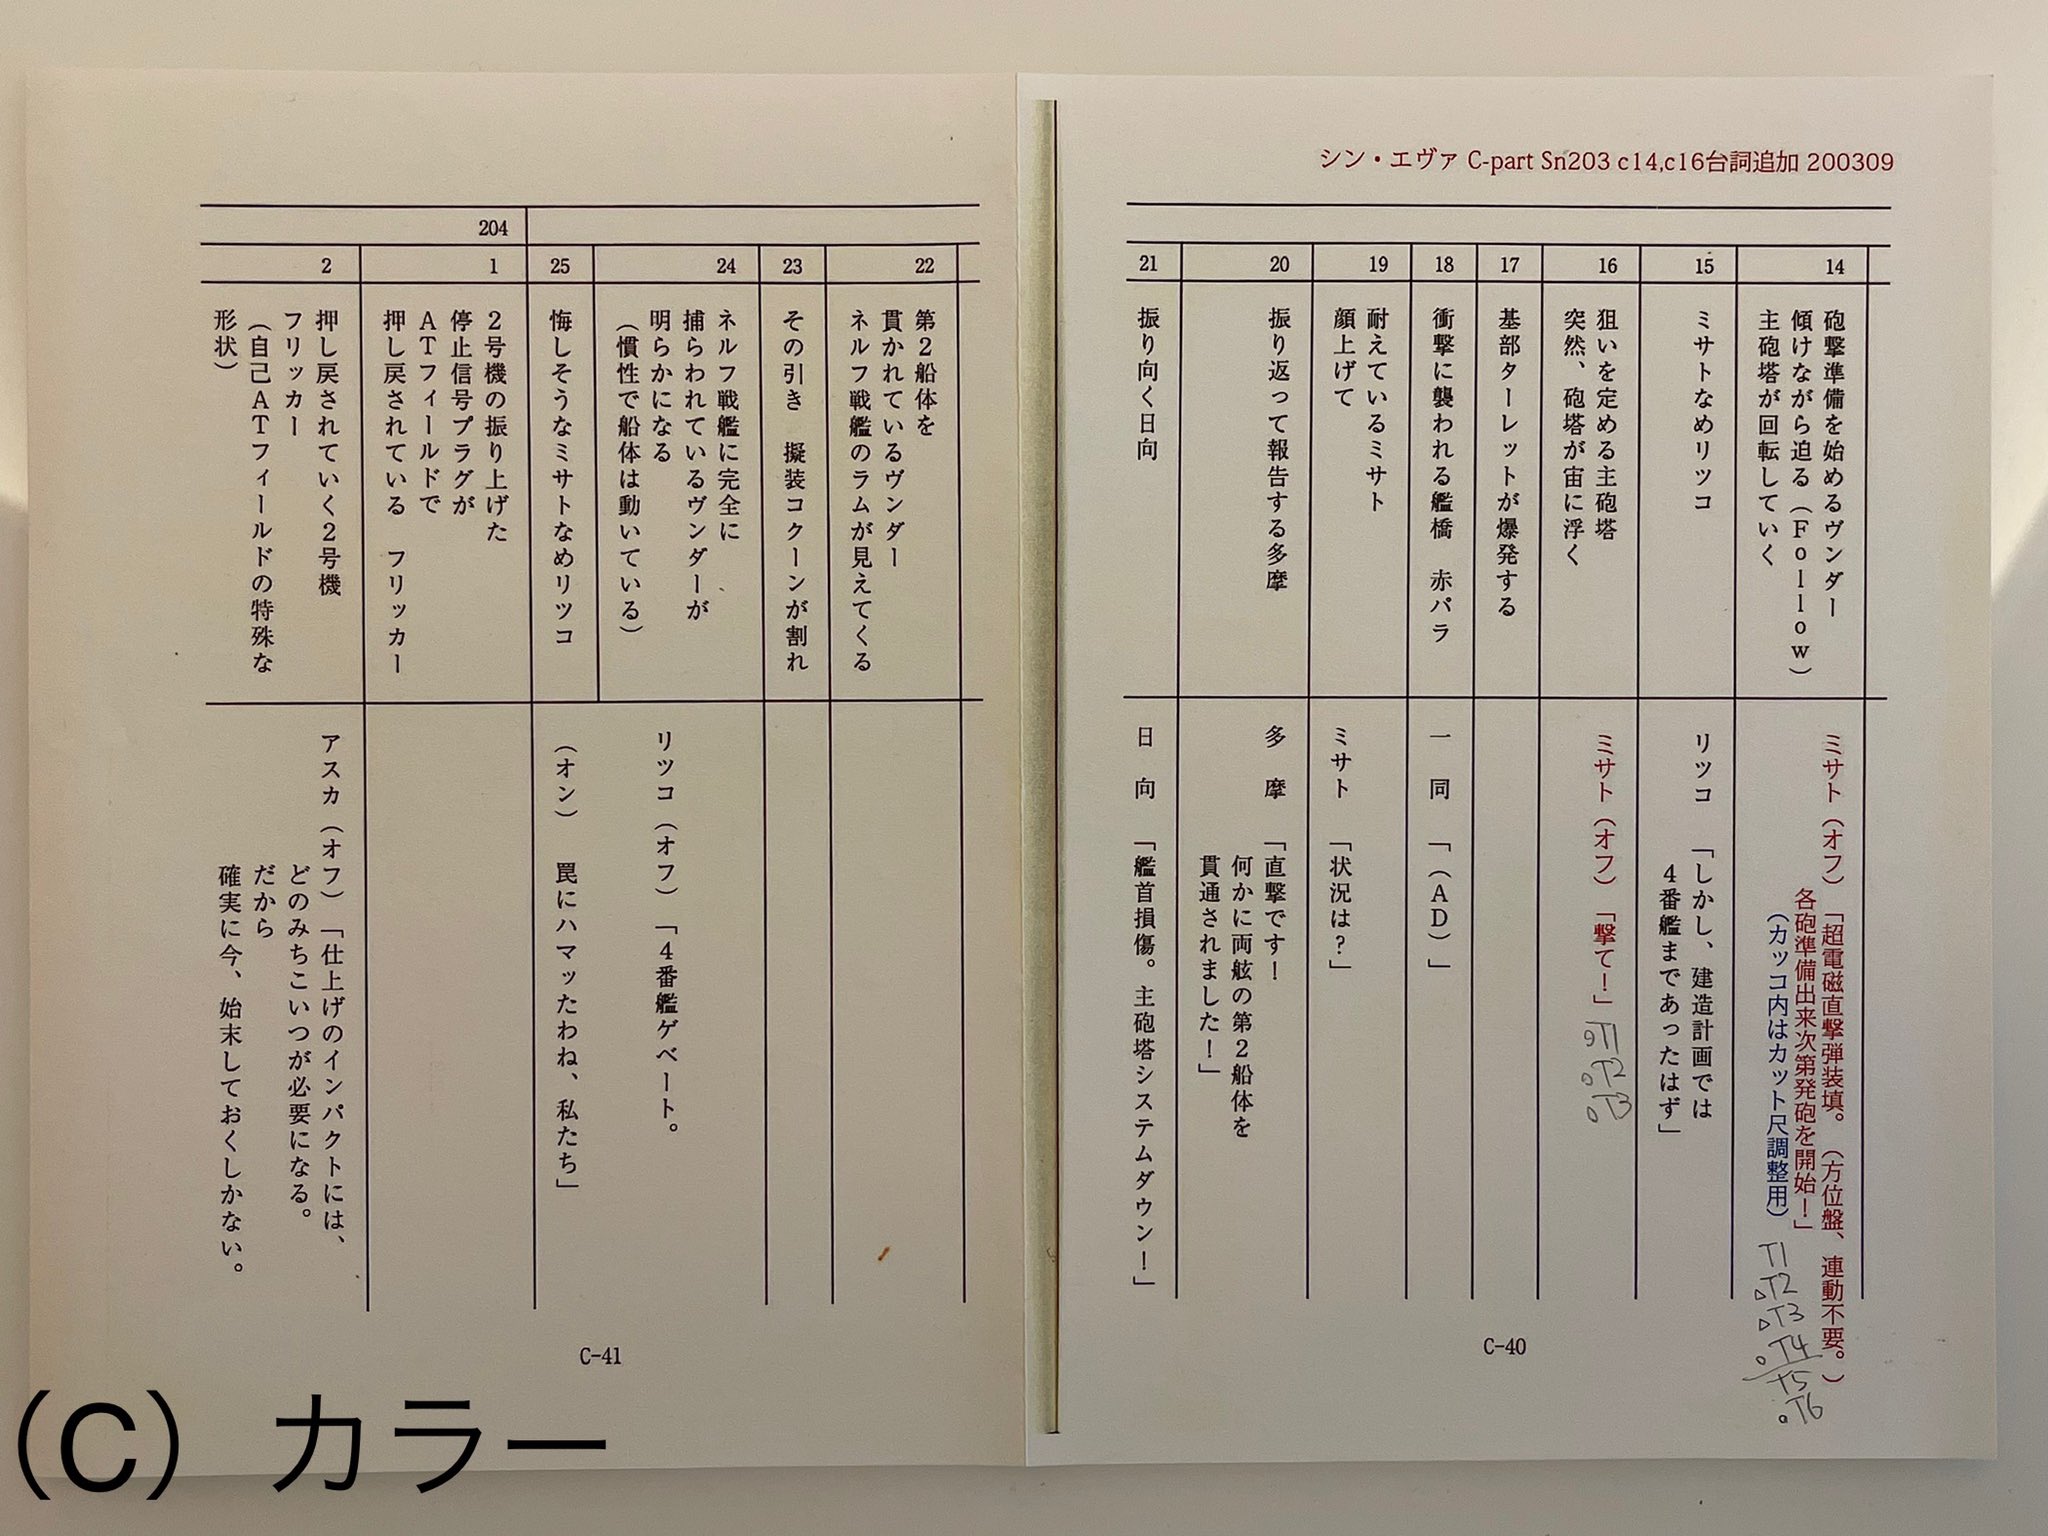 シン・エヴァ C-part Sn203 c14,c16台詞追加 200309
14
砲撃準備を始めるヴンダー
傾けながら迫る（Ｆｏｌｌｏｗ）
主砲塔が回転していく
ミサト（オフ）「超電磁直撃弾装填。（方位盤、連動不要。）
各砲準備出来次第発砲を開始！」
（カッコ内はカット尺調整用）
T1
○T2
○T3
○T4
T5
○T6
15
ミサトなめリツコ
リツコ「しかし、建造計画では
４番艦まであったはず」
16
狙いを定める主砲塔
突然、砲塔が宙に浮く
ミサト（オフ）「撃て！」
○T1
○T2
○T3
17
基部ターレットが爆発する
18
衝撃に襲われる艦橋　赤パラ
一　同「（ＡＤ）」
19
耐えているミサト
顔上げて
ミサト「状況は？」
20
振り返って報告する多摩
多　摩「直撃です！
何かに両舷の第２船体を
貫通されました！」
21
振り向く日向
日　向「艦首損傷。主砲塔システムダウン！」
C-40
22
第２船体を
貫かれているヴンダー
ネルフ戦艦のラムが見えてくる
23
その引き　擬装コクーンが割れ
24
ネルフ戦艦に完全に
捕らわれているヴンダーが
明らかになる
（慣性で船体は動いている）
リツコ（オフ）「４番艦ゲベート。
25
悔しそうなミサトなめリツコ
（オン）　罠にハマッたわね、私たち」
204
1
２号機の振り上げた
停止信号プラグが
ＡＴフィールドで
押し戻されている　フリッカー
2
押し戻されていく２号機
フリッカー
（自己ＡＴフィールドの特殊な
形状）
アスカ（オフ）「仕上げのインパクトには、
どのみちこいつが必要になる。
だから
確実に今、始末しておくしかない。
C-41
（C）カラー